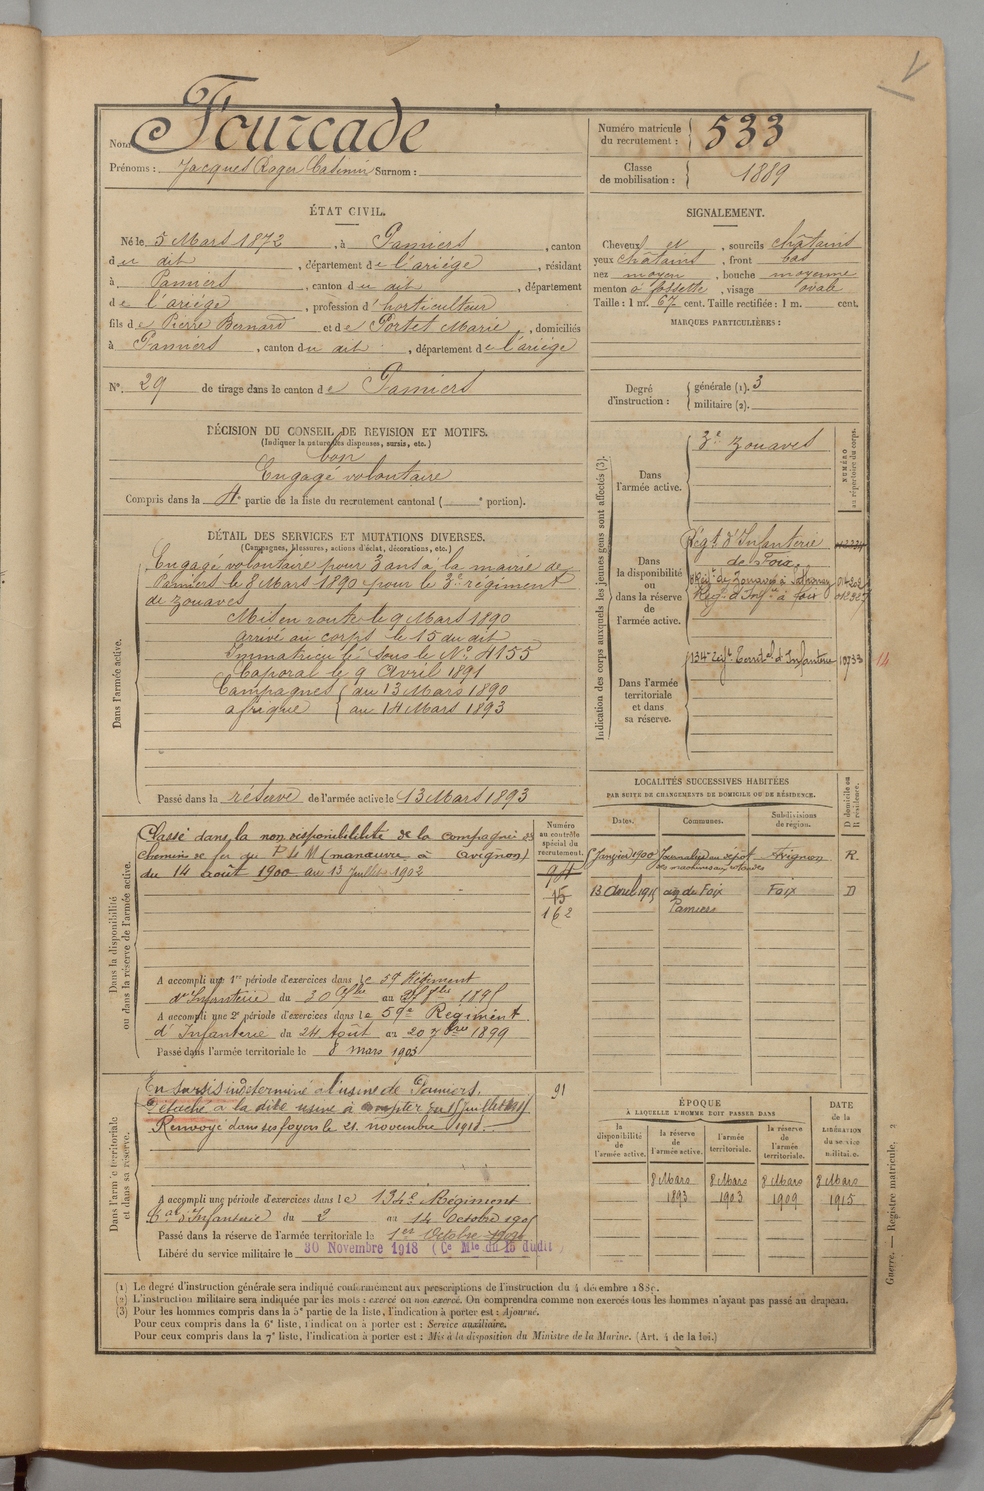 Nom Fourcade
Prénoms : Jacques Roger Casimir Surnom :
Numéro matricule du recrutement : 533
Classe de mobilisation : 1889
ÉTAT CIVIL.
Né le 5 Mars 1872, à Pamiers, canton
du dit, département de l'ariége, résidant
à Pamiers, canton du dit, département
de l'ariége, profession d'horticulteur
fils de Pierre Bernard et de Portet Marie, domiciliés
à Pamiers, canton du dit, département de l'ariége
N°. 29 de tirage dans le canton de Pamiers
SIGNALEMENT.
Cheveux et, sourcils châtains
yeux châtains, front bas
nez moyen, bouche moyenne
menton à fossette, visage ovale
Taille : 1 m. 67 cent. Taille rectifiée : 1 m. cent.
MARQUES PARTICULIÈRES :
Degré d'instruction :
générale (1). 3
militaire (2).
DÉCISION DU CONSEIL DE REVISION ET MOTIFS.
(Indiquer la nature des dispenses, sursis, etc.)
bon
Engagé volontaire
Compris dans la 4e partie de la liste du recrutement cantonal ( e portion).
DÉTAIL DES SERVICES ET MUTATIONS DIVERSES.
(Campagnes, blessures, actions d'éclat, décorations, etc.)
Dans l'armée active.
Engagé volontaire pour 3 ans à la mairie de
Pamiers le 8 Mars 1890 pour le 3e régiment
de zouaves
Mis en route le 9 Mars 1890
arrivé au corps le 15 du dit
Immatriculé sous le N° 4155
Caporal le 9 Avril 1891
Campagnes { du 13 Mars 1890
afrique { au 14 Mars 1893
Passé dans la réserve de l'armée active le 13 Mars 1893
Indication des corps auxquels les jeunes gens sont affectés (3).
NUMÉRO au répertoire du corps.
Dans l'armée active.
3e zouaves
Dans la disponibilité ou dans la réserve de l'armée active.
Régt d'Infanterie
de Foix
Regt d'Infie à foix
Dans l'armée territoriale et dans sa réserve.
134e Régt Territal d'Infanterie 10733 14
LOCALITÉS SUCCESSIVES HABITÉES
PAR SUITE DE CHANGEMENTS DE DOMICILE OU DE RÉSIDENCE.
Dates. Communes. Subdivisions de région. D domicile ou R résidence.
Janvier 1900 Journalier au dépôt des machines Avignon R.
13 Avril 1915 Foix Foix D
Pamiers
Dans la disponibilité ou dans la réserve de l'armée active.
Numéro au contrôle spécial du recrutement.
Classé dans la non disponibilité de la compagnie des
chemins de fer du P L M (manœuvre à Avignon)
du 14 août 1900 au 13 juillet 1902
94
15
162
A accompli une 1re période d'exercices dans le 59 Régiment
d'Infanterie du 30 7bre au 8bre 1895
A accompli une 2e période d'exercices dans le 59e Regiment
d'Infanterie du 24 Août au 20 7bre 1899
Passé dans l'armée territoriale le 8 mars 1903
Dans l'armée territoriale et dans sa réserve.
En sursis indéterminé à l'usine de Pamiers. 91
Détaché à la dite usine à compter du
Renvoyé dans ses foyers le 21 novembre 1918.
A accompli une période d'exercices dans le 134e Régiment
d'Infanterie du 2 au 14 Octobre 1905
Passé dans la réserve de l'armée territoriale le 1er Octobre 1909
Libéré du service militaire le 30 Novembre 1918 (Ce Mle du 15 dudit)
ÉPOQUE
À LAQUELLE L'HOMME DOIT PASSER DANS
DATE de la LIBÉRATION du service militaire.
la disponibilité de l'armée active.
la réserve de l'armée active.
l'armée territoriale.
la réserve de l'armée territoriale.
8 Mars 1893
8 Mars 1903
8 Mars 1909
8 Mars 1915
Guerre. — Registre matricule. 2
(1) Le degré d'instruction générale sera indiqué conformément aux prescriptions de l'instruction du 4 décembre 1889.
(2) L'instruction militaire sera indiquée par les mots : exercé ou non exercé. On comprendra comme non exercés tous les hommes n'ayant pas passé au drapeau.
(3) Pour les hommes compris dans la 5e partie de la liste, l'indication à porter est : Ajourné.
Pour ceux compris dans la 6e liste, l'indication à porter est : Service auxiliaire.
Pour ceux compris dans la 7e liste, l'indication à porter est : Mis à la disposition du Ministre de la Marine. (Art. 4 de la loi.)